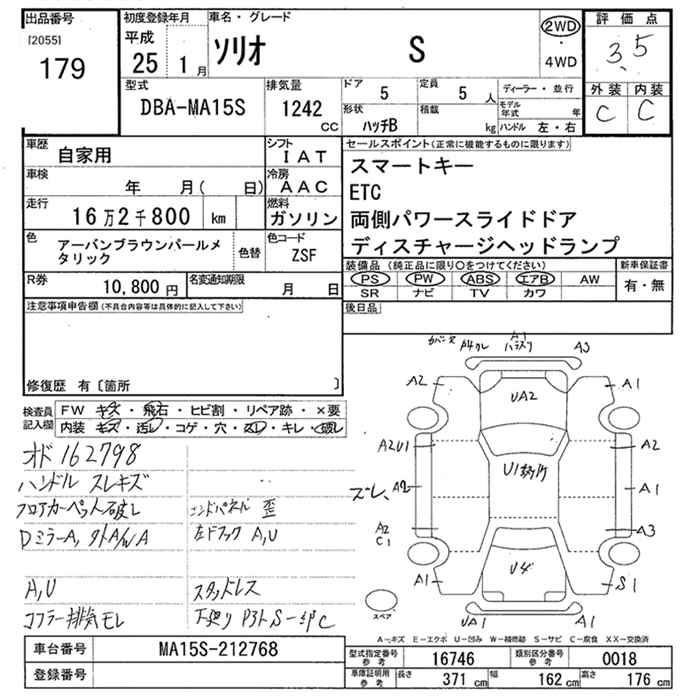 出品番号
[2055]
179
初度登録年月
平成
25 1 月
車名・グレード
ソリオ S
2WD
・
4WD
評価点
3.5
外装 内装
C C
型式
DBA-MA15S
排気量
1242 cc
ドア 5
定員 5 人
形状 ハッチB
積載 kg
ディーラー・並行
モデル年式 年
ハンドル 左・右
車歴 自家用
シフト IAT
車検 年 月( 日)
冷房 AAC
走行 16万2千800 km
燃料 ガソリン
色 アーバンブラウンパールメタリック
色替
色コード ZSF
R券 10,800円
名変通知期限 月 日
セールスポイント(正常に機能するものに限ります)
スマートキー
ETC
両側パワースライドドア
ディスチャージヘッドランプ
装備品(純正品に限り○をつけてください)
新車保証書
PS PW ABS エアB AW
SR ナビ TV カワ
有・無
後日品
注意事項申告欄(不具合内容等は具体的に記入して下さい)
修復歴 有〔箇所 〕
検査員記入欄
FW キズ・飛石・ヒビ割・リペア跡・×要
内装 キズ・汚レ・コゲ・穴・スレ・キレ・破レ
オド162798
ハンドル スレキズ
フロアカーペット破レ
コンドパネル 歪
DミラーA,
A,U
左ドア A,U
スタッドレス
マフラー排気モレ
下廻り S
A1
A3
A2
A1
UA2
A2U1
A2
U1
ズレ,
A2
A1
A2
C1
A3
A1
S1
UA1
A1
スペア
A―キズ E―エクボ U―凹み W―補修跡 S―サビ C―腐食 XX―交換済
車台番号 MA15S-212768
登録番号
型式指定番号 参考 16746
類別区分番号 参考 0018
車庫証明用 参考 長さ 371 cm 幅 162 cm 高さ 176 cm